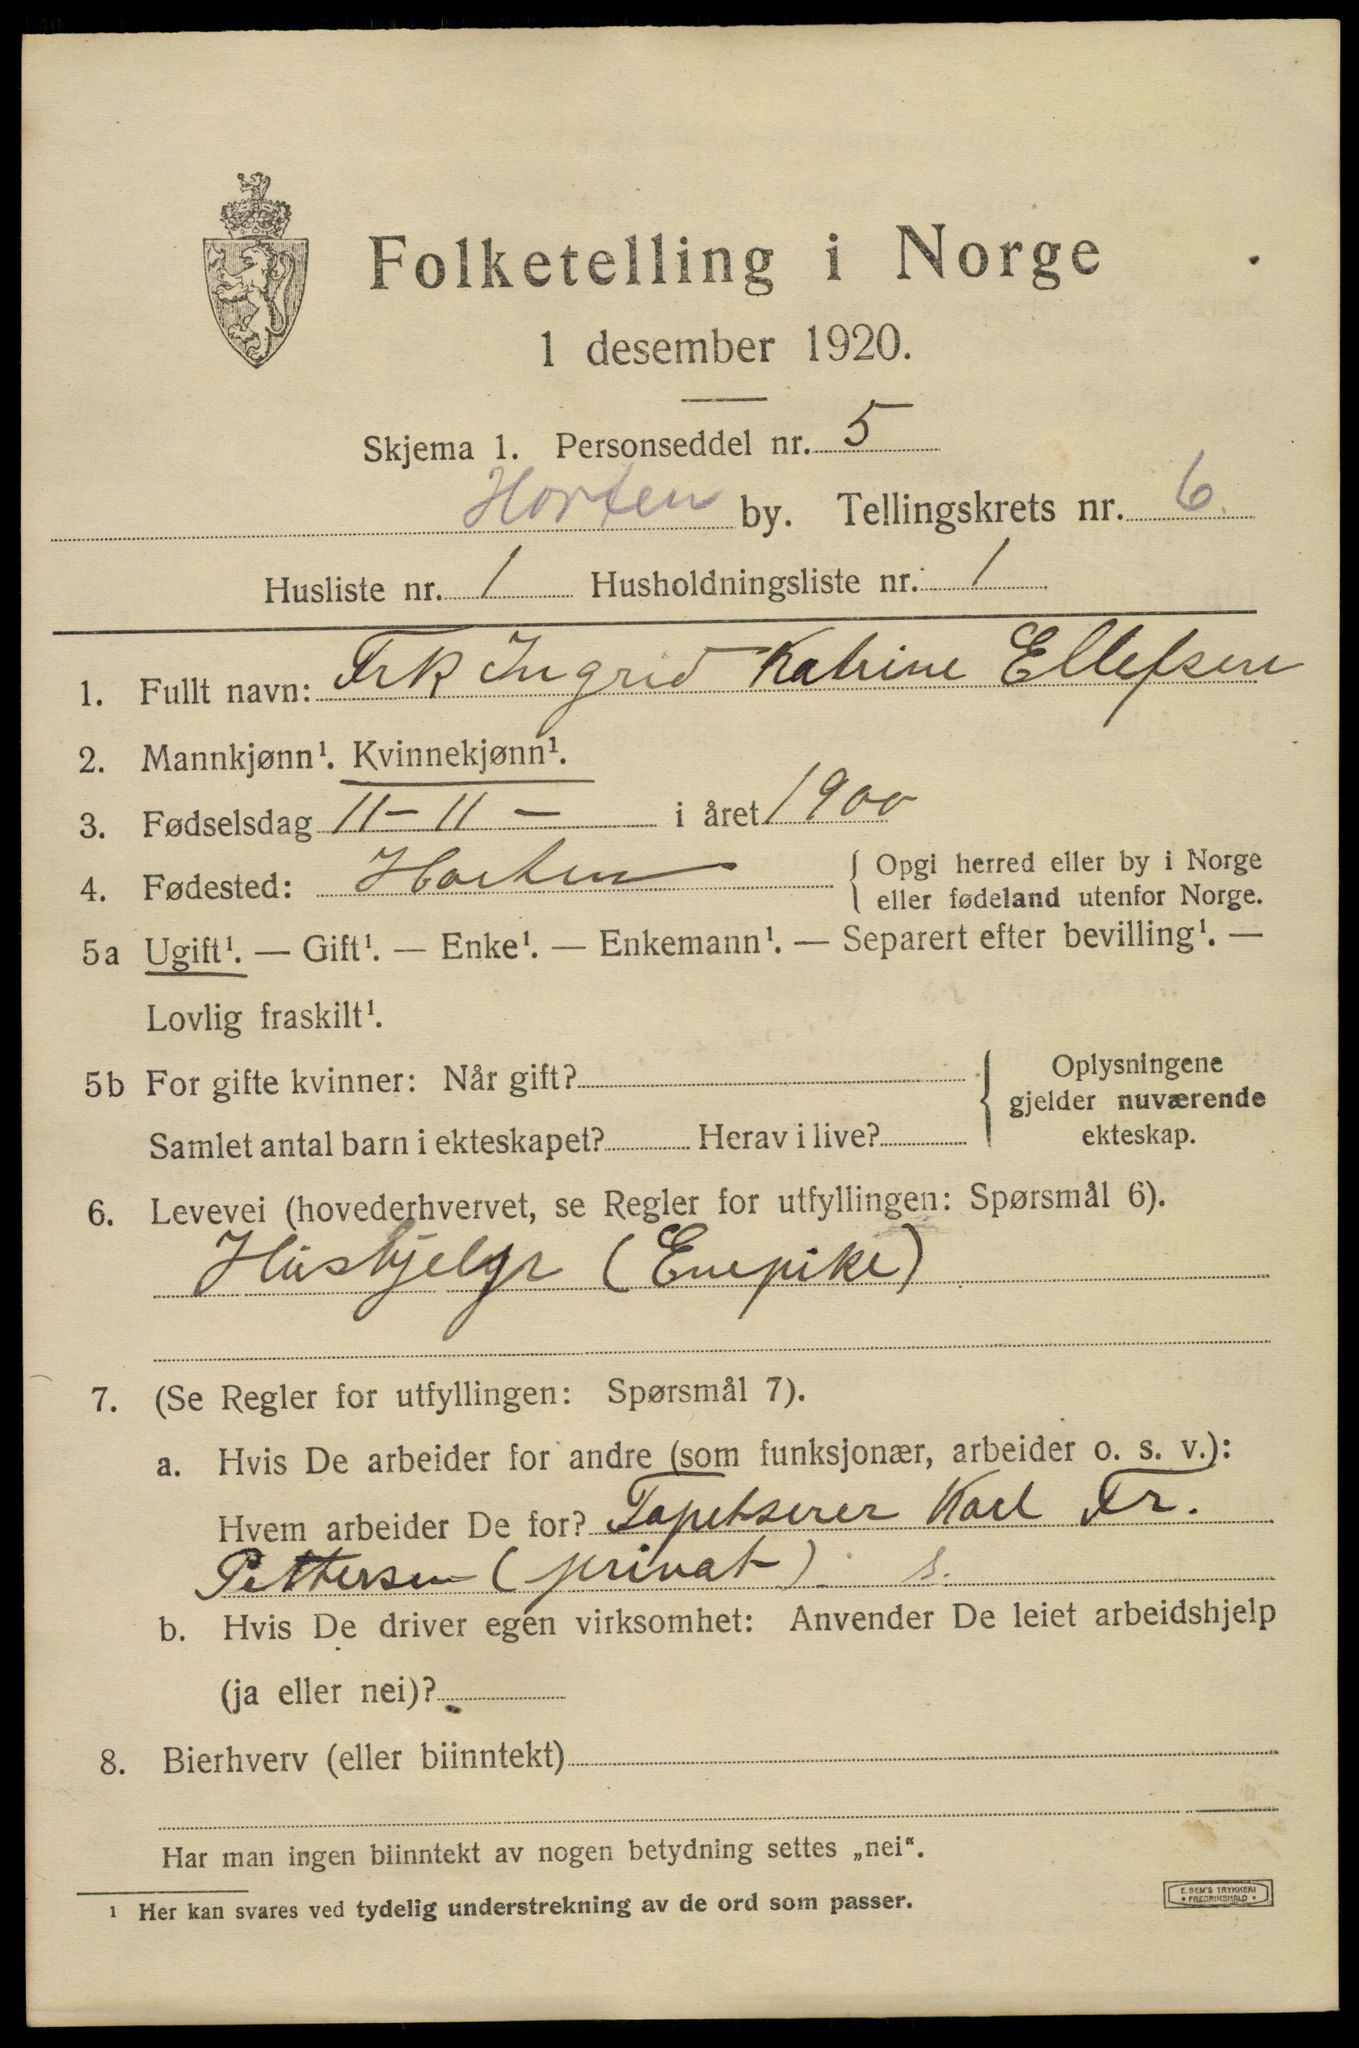 Folketelling i Norge
1 desember 1920.
Skjema 1. Personseddel nr. 5
Horten by. Tellingskrets nr. 6.
Husliste nr. 1 Husholdningsliste nr. 1
1. Fullt navn: Frk Ingrid Katrine Ellefsen
2. Mannkjønn¹. Kvinnekjønn¹.
3. Fødselsdag 11-11- i året 1900
4. Fødested: Horten { Opgi herred eller by i Norge
eller fødeland utenfor Norge.
5a Ugift¹. — Gift¹. — Enke¹. — Enkemann¹. — Separert efter bevilling¹. —
Lovlig fraskilt¹.
5b For gifte kvinner: Når gift?
Samlet antal barn i ekteskapet? Herav i live?
{ Oplysningene
gjelder nuværende
ekteskap.
6. Levevei (hovederhvervet, se Regler for utfyllingen: Spørsmål 6).
Hushjelp (Enepike)
7. (Se Regler for utfyllingen: Spørsmål 7).
a. Hvis De arbeider for andre (som funksjonær, arbeider o. s. v.):
Hvem arbeider De for? Tapetserer Karl Fr.
Pettersen (privat) s.
b. Hvis De driver egen virksomhet: Anvender De leiet arbeidshjelp
(ja eller nei)?
8. Bierhverv (eller biinntekt)
Har man ingen biinntekt av nogen betydning settes „nei“.
¹ Her kan svares ved tydelig understrekning av de ord som passer.
E. SEM'S TRYKKERI
* FREDRIKSHALD *